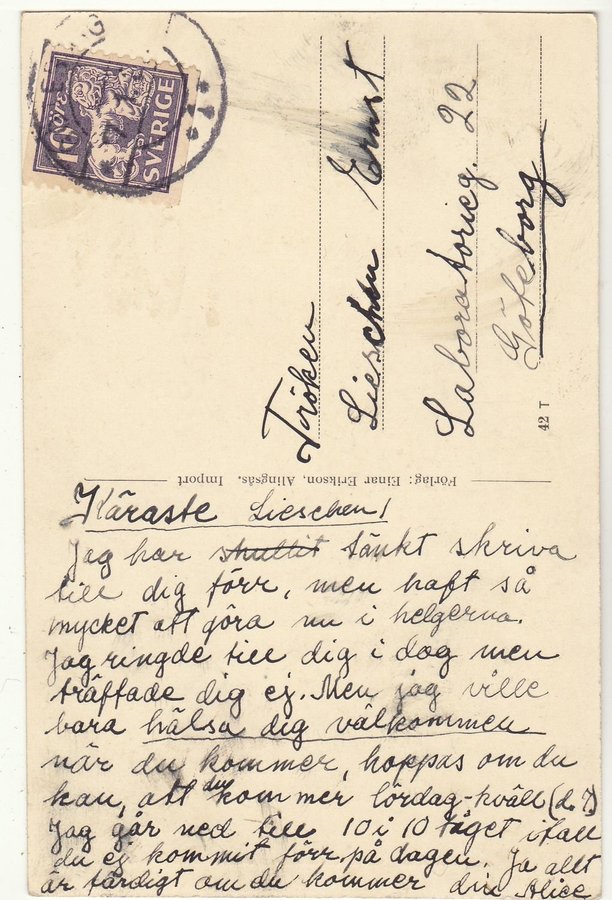 10 ÖRE
SVERIGE
Fröken
Lieschen Ernst
Laboratorieg. 22
Göteborg
42 T
Förlag: Einar Erikson, Alingsås. Import
Käraste Lieschen!
Jag har tänkt skriva
till dig förr, men haft så
mycket att göra nu i helgerna.
Jag ringde till dig i dag men
träffade dig ej. Men jag ville
bara hälsa dig välkommen
när du kommer, hoppas om du
kan, att du kommer lördag-kväll (d. 7)
Jag går ned till 10 i 10 tåget ifall
du ej kommit förr på dagen. Ja allt
är färdigt om du kommer din Alice